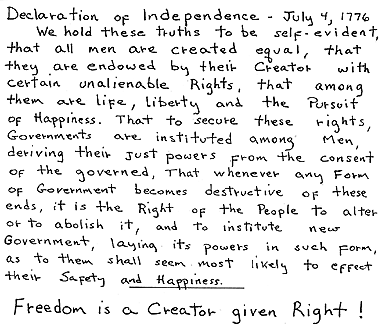 Declaration of Independence - July 4, 1776
We hold these truths to be self-evident,
that all men are created equal, that
they are endowed by their Creator with
certain unalienable Rights, that among
them are life, liberty and the Pursuit
of Happiness. That to secure these rights,
Governments are instituted among Men,
deriving their just powers from the consent
of the governed, That whenever any Form
of Government becomes destructive of these
ends, it is the Right of the People to alter
or to abolish it, and to institute new
Government, laying its powers in such form,
as to them shall seem most likely to effect
their Safety and Happiness.
Freedom is a Creator given Right!